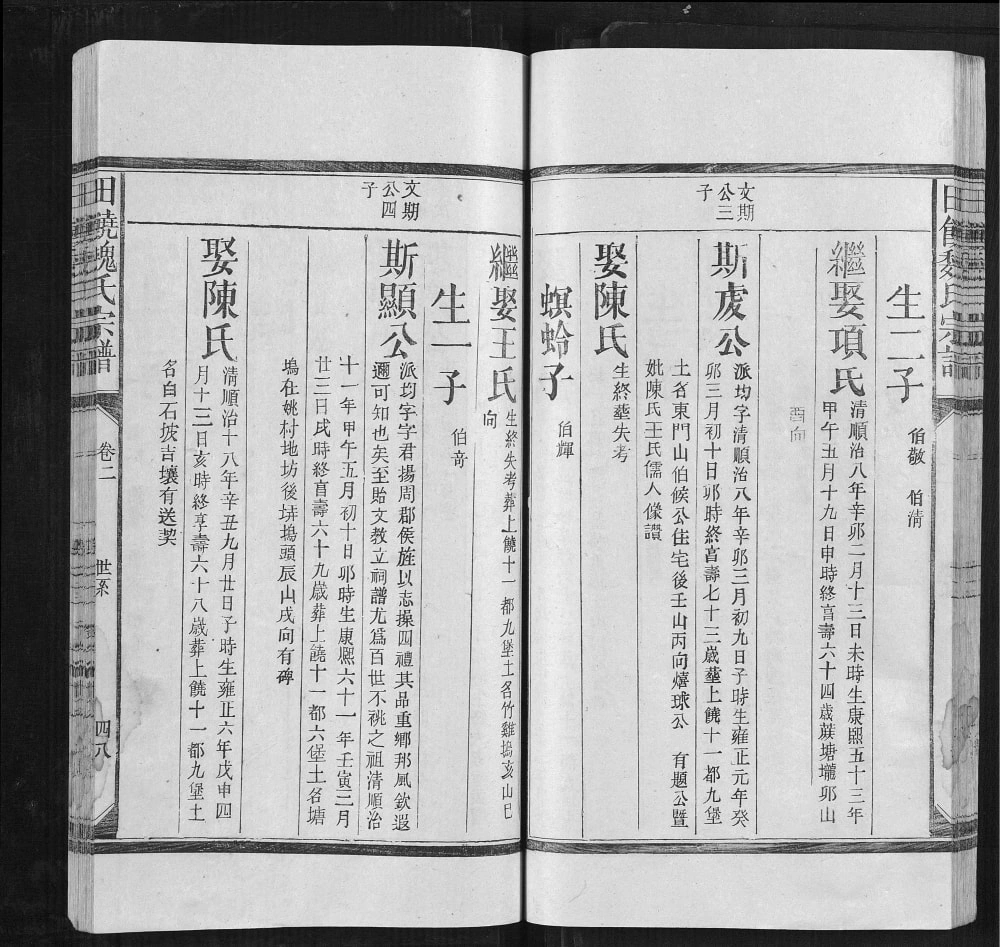 文期
公三
子
生二子
伯敬 伯清
繼娶項氏
清順治八年辛卯二月十三日未時生康熙五十三年
甲午五月十九日申時終亯壽六十四歲蔟塘壠卯山
酉向
斯虔公
派均字清順治八年辛卯三月初九日子時生雍正元年癸
卯三月初十日卯時終亯壽七十三歲塟上饒十一都九堡
土名東門山伯候公住宅後壬山丙向嬉球公 有題公暨
妣陳氏王氏儒人像讚
娶陳氏
生終塟失考
螟蛉子
伯輝
文期
公四
子
繼娶王氏
生終失考葬上饒十一都九堡土名竹雞塢亥山巳
向
生一子
伯奇
斯顯公
派均字字君揚周郡侯旌以志操四禮其品重鄉邦風欽遐
邇可知也矣至貽文教立祠譜尤爲百世不祧之祖清順治
十一年甲午五月初十日卯時生康熙六十一年壬寅二月
廿二日戌時終亯壽六十九歲葬上饒十一都六堡土名塘
塢在姚村地坊後垪塢頭辰山戌向有碑
娶陳氏
清順治十八年辛丑九月廿日子時生雍正六年戊申四
月十三日亥時終享壽六十八歲葬上饒十一都九堡土
名白石坡吉壤有送契
田墝魏氏宗譜
卷二
世系
四八